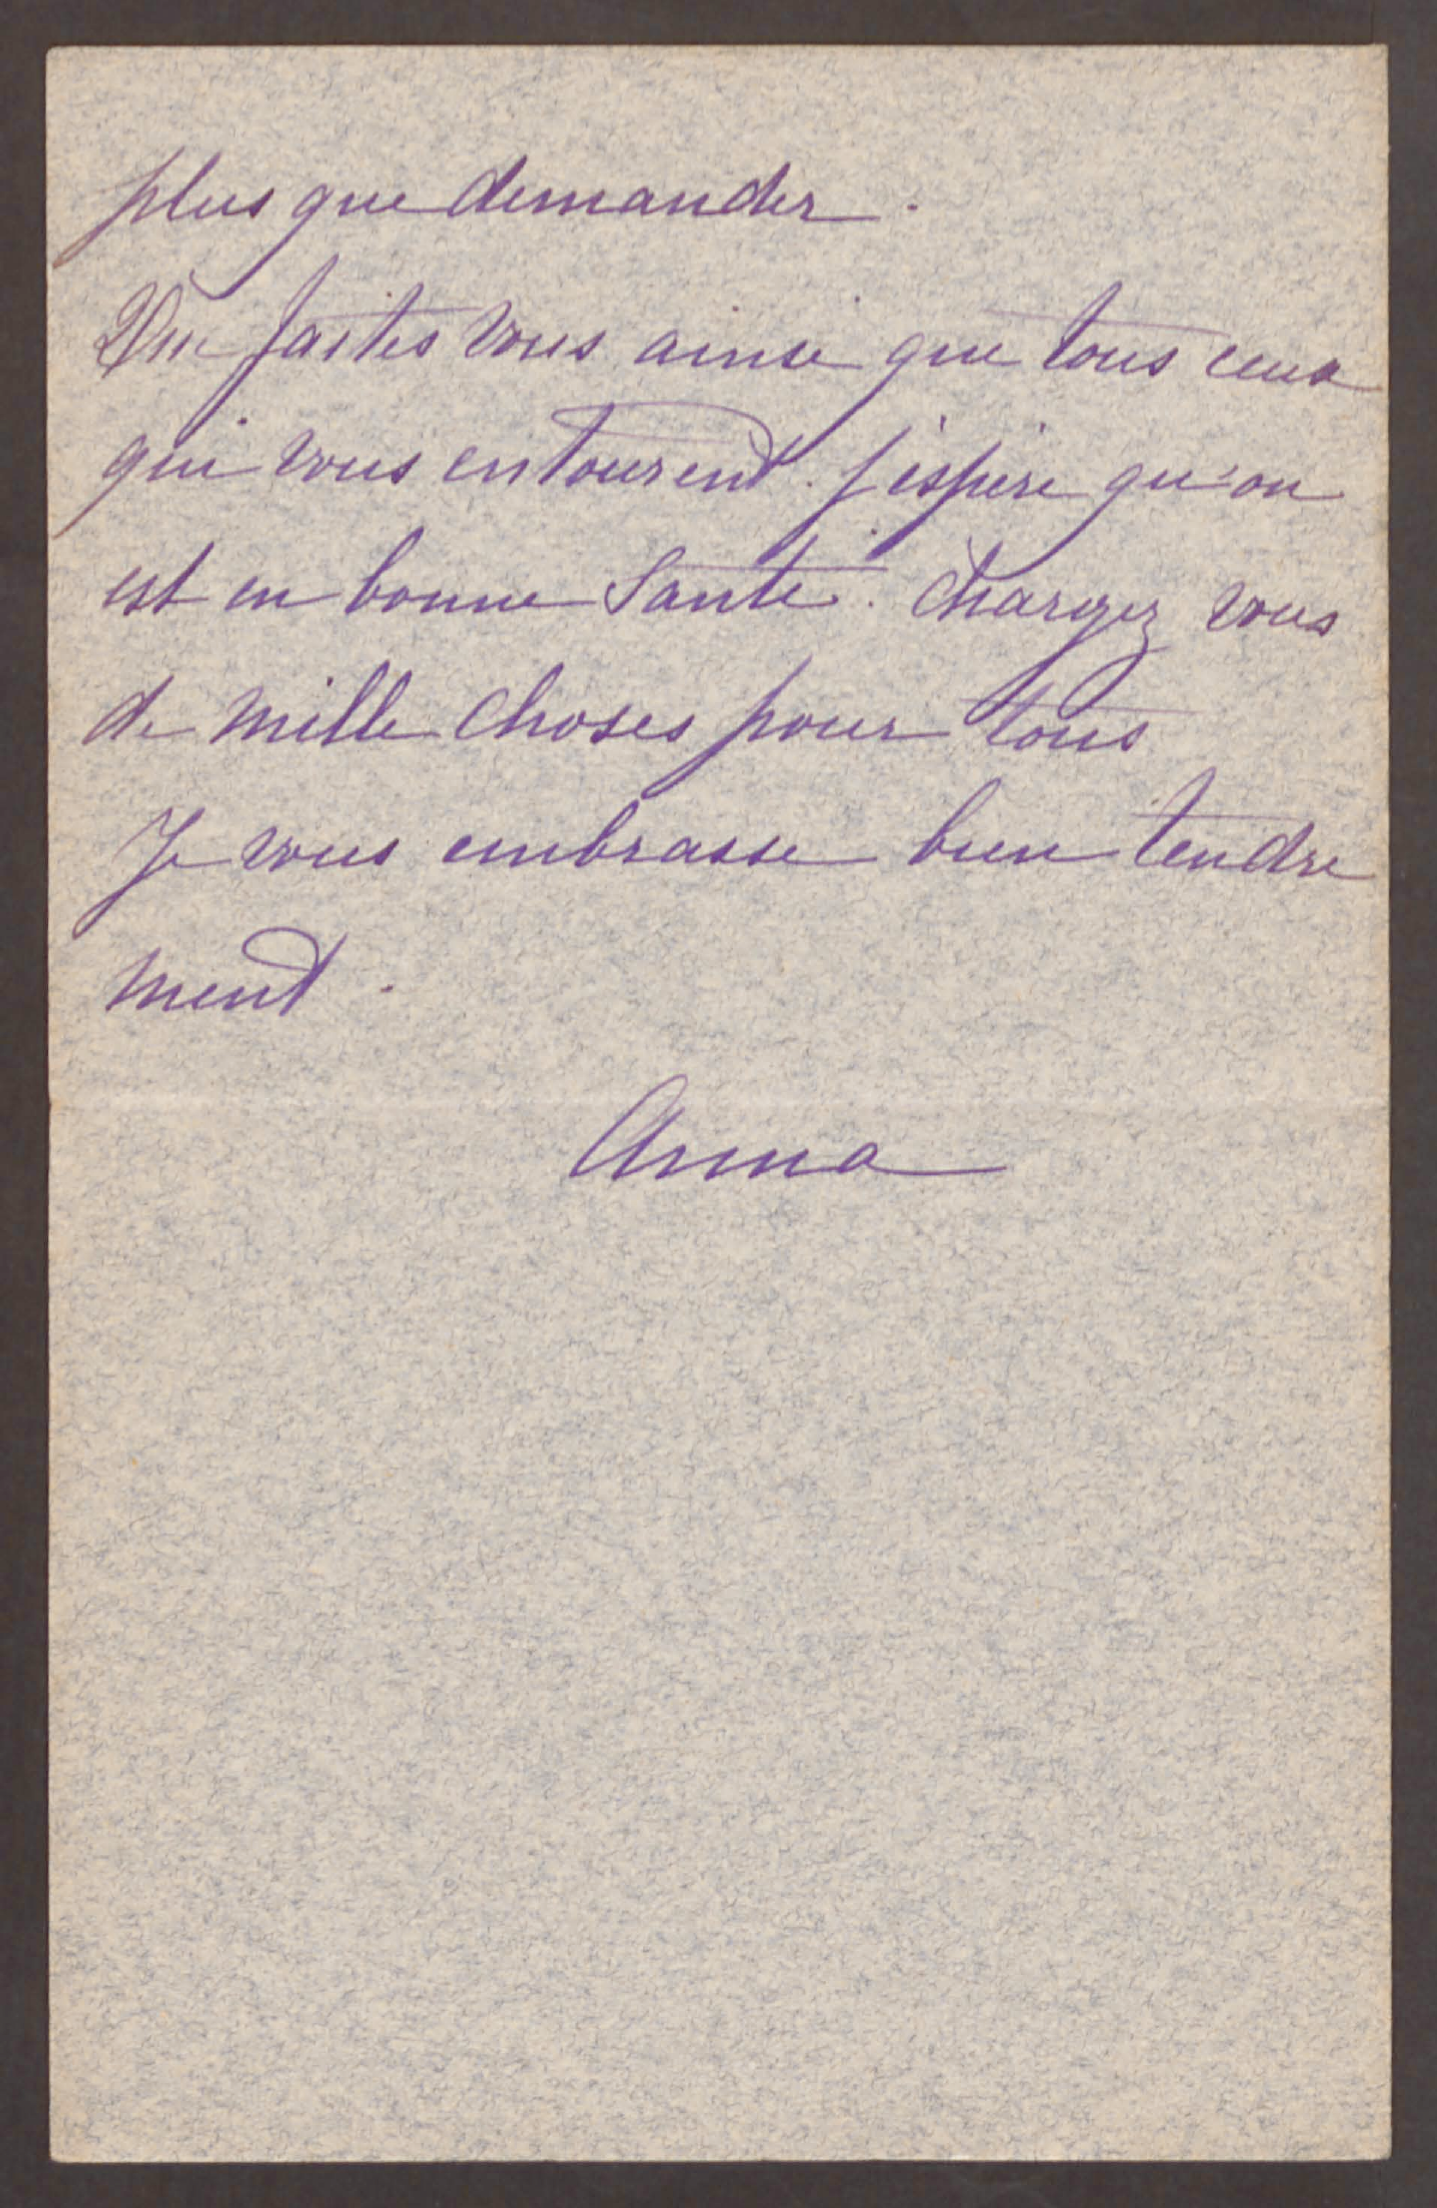 plus que demander.
Que faites vous ainsi que tous ceux
qui vous entourent. j'espère qu'on
est en bonne Santé. Chargez vous
de mille choses pour tous
Je vous embrasse bien tendre
ment.
Anna